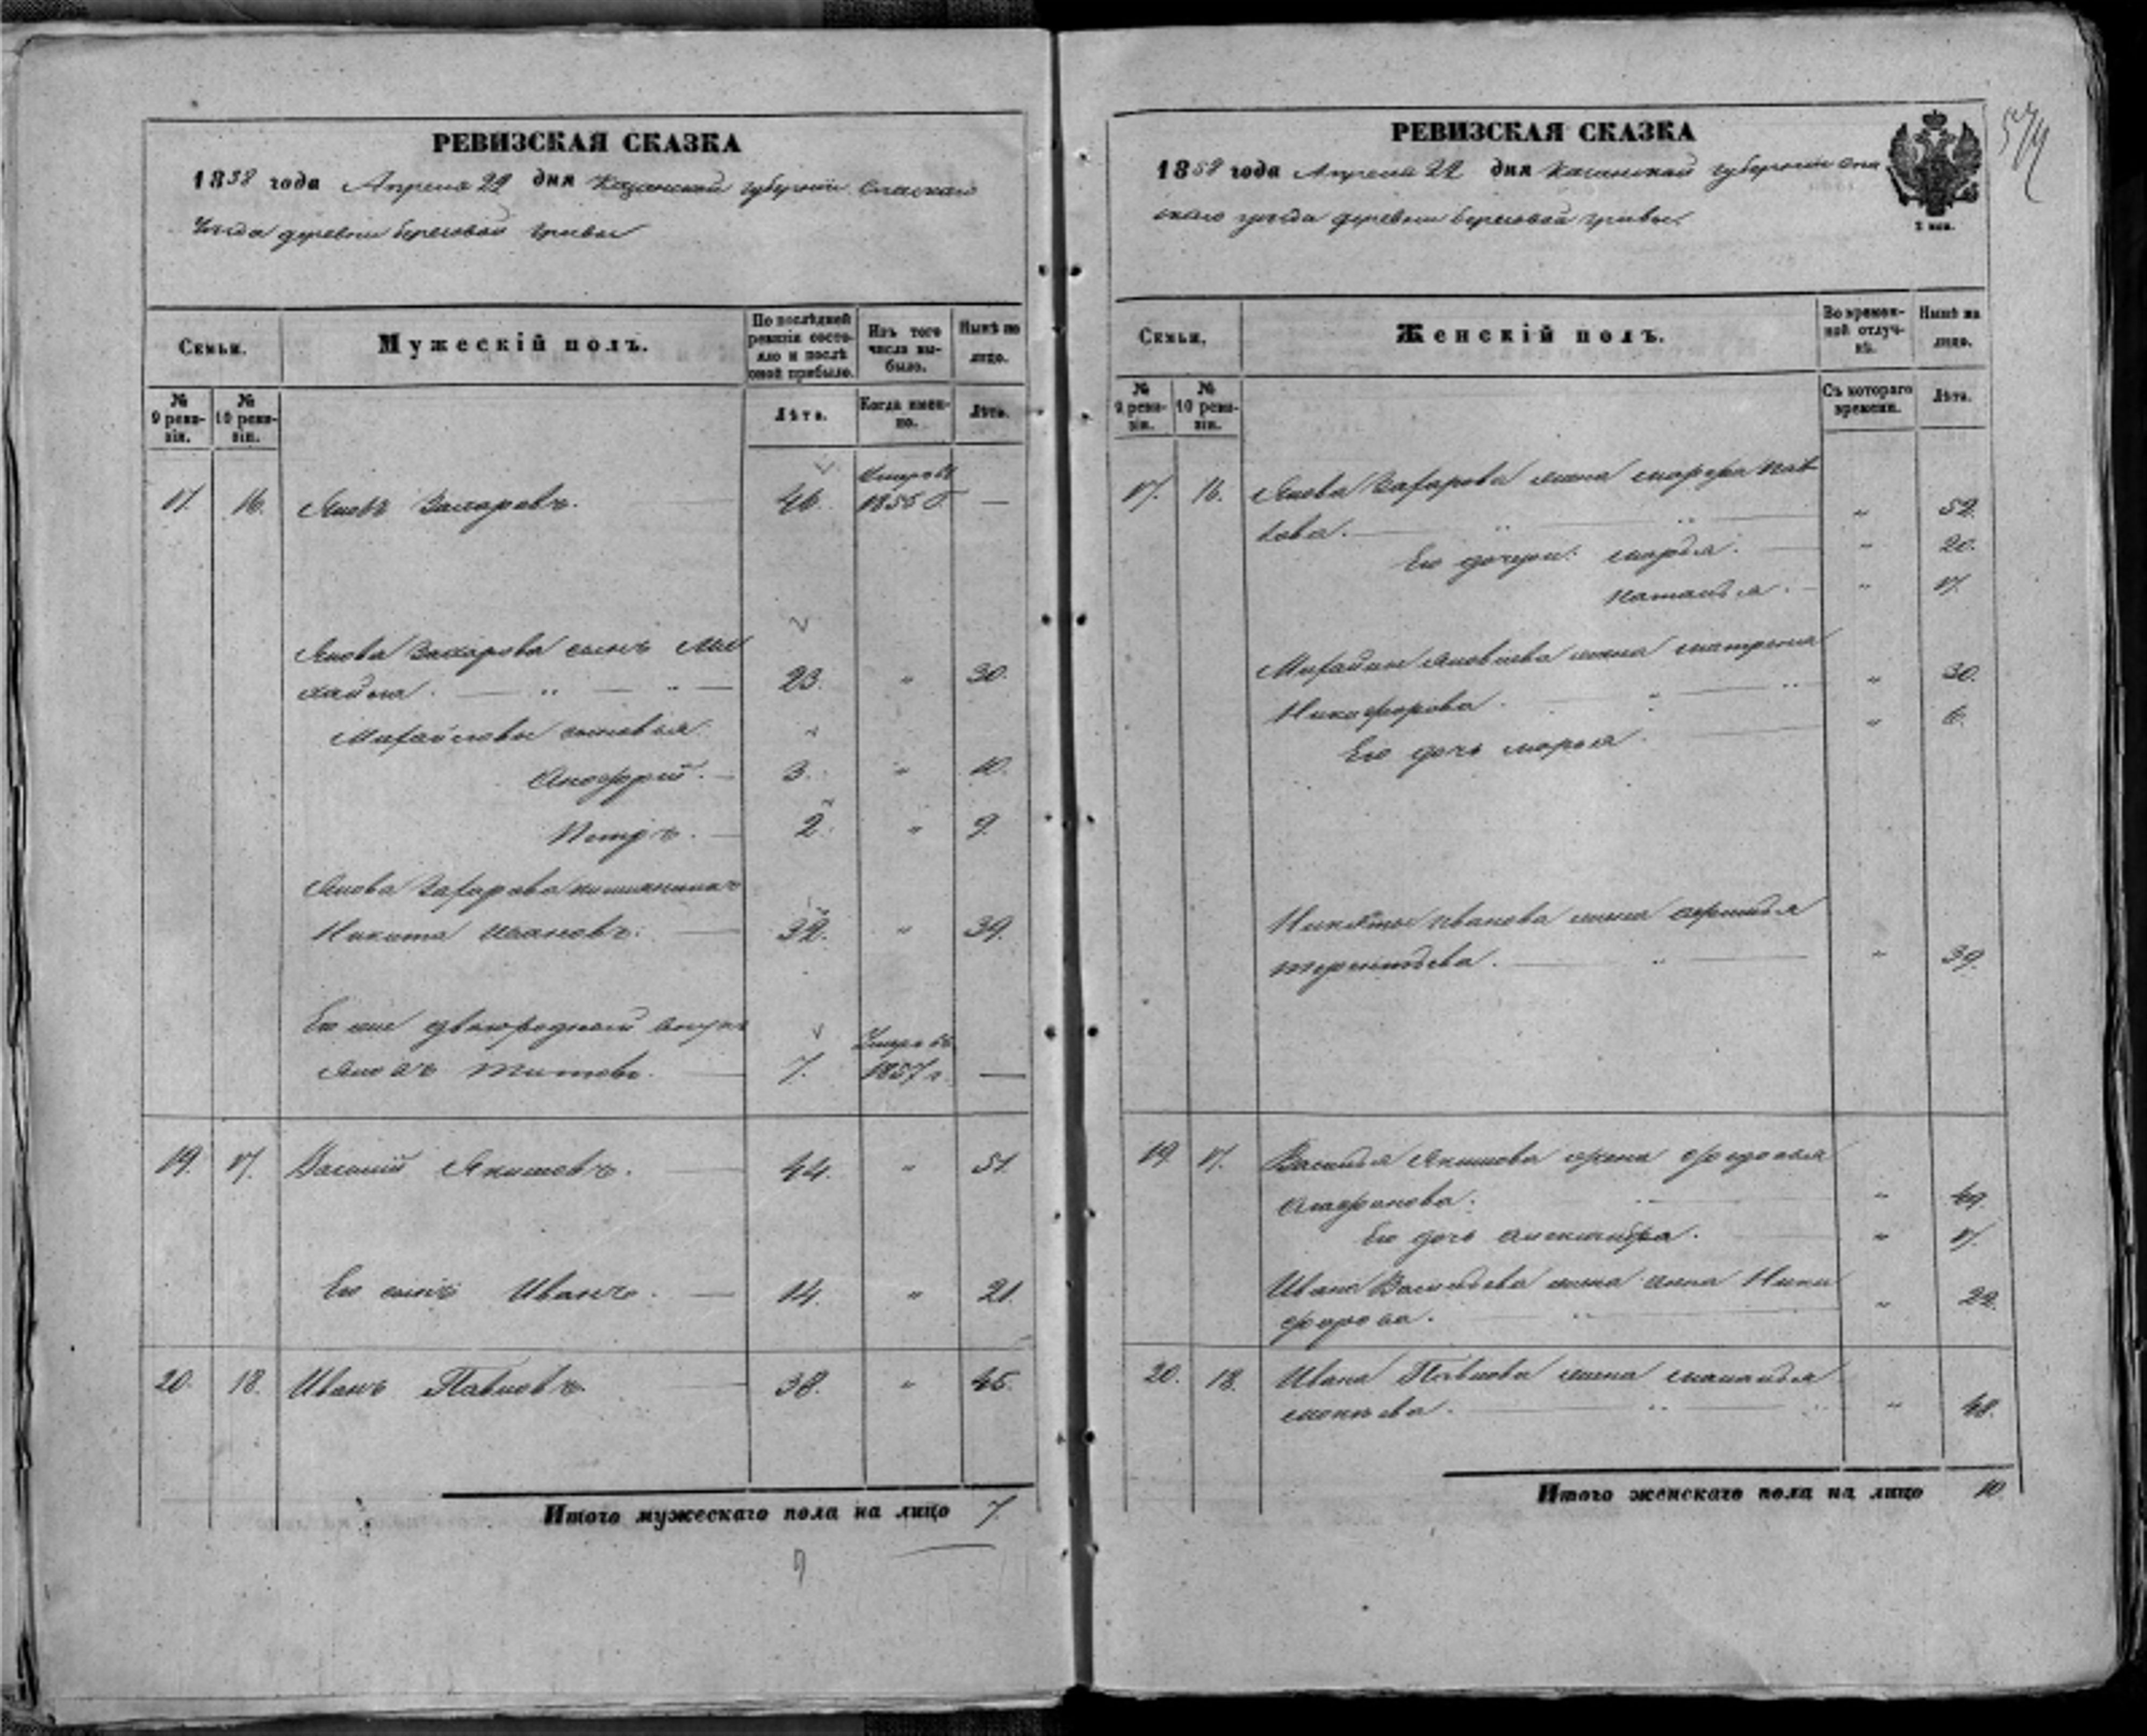 РЕВИЗСКАЯ СКАЗКА
1858 года Апреля 22 дня Казанской губернии Спаскаго
Уезда деревни береговой гривы
Семьи.
Мужескій полъ.
По послѣдней ревизіи состояло и послѣ оной прибыло.
Изъ того числа выбыло.
Нынѣ на лицо.
№ 9 ревизіи.
№ 10 ревизіи.
Лѣта.
Когда именно.
Лѣта.
17. 16. Яковъ Захаровъ. 46. Умеръ въ 1855 —
Якова Захарова сынъ Ми
хайла. 23. " 30.
Михайловы сыновья:
Анофрей. 3. " 10.
Петръ. 2. " 9.
Якова Захарова племянникъ
Никита Ивановъ. 32. " 39.
Его же двоюродный
Титовъ. 7. Умеръ въ 1857 г. —
19. 17. Василий Якимовъ. 44. " 51.
Его сынъ Иванъ. 14. " 21.
20. 18. Иванъ Павловъ. 38. " 45.
Итого мужескаго пола на лицо 7.
РЕВИЗСКАЯ СКАЗКА
1858 года Апреля 22 дня Казанской губернии Спа
скаго уезда деревни береговой гривы.
2 коп.
Семьи.
Женскій полъ.
Во временной отлучкѣ.
Нынѣ на лицо.
№ 9 ревизіи.
№ 10 ревизіи.
Съ котораго времени.
Лѣта.
17. 16. Якова Захарова жена марфа Пав
лова. " 52.
Его дочери: марья. " 20.
Наталья. " 17.
Михайлы Яковлева жена матрена
Никифорова. " 30.
Его дочь марья. " 6.
Никиты Иванова жена
терентьева. " 39.
19. 17. Василья Якимова жена федосья
" 49.
Его дочь александра. " 17.
Ивана Васильева жена анна Ники
форова. " 22.
20. 18. Ивана Павлова жена маланья
" 48.
Итого женскаго пола на лицо 10.